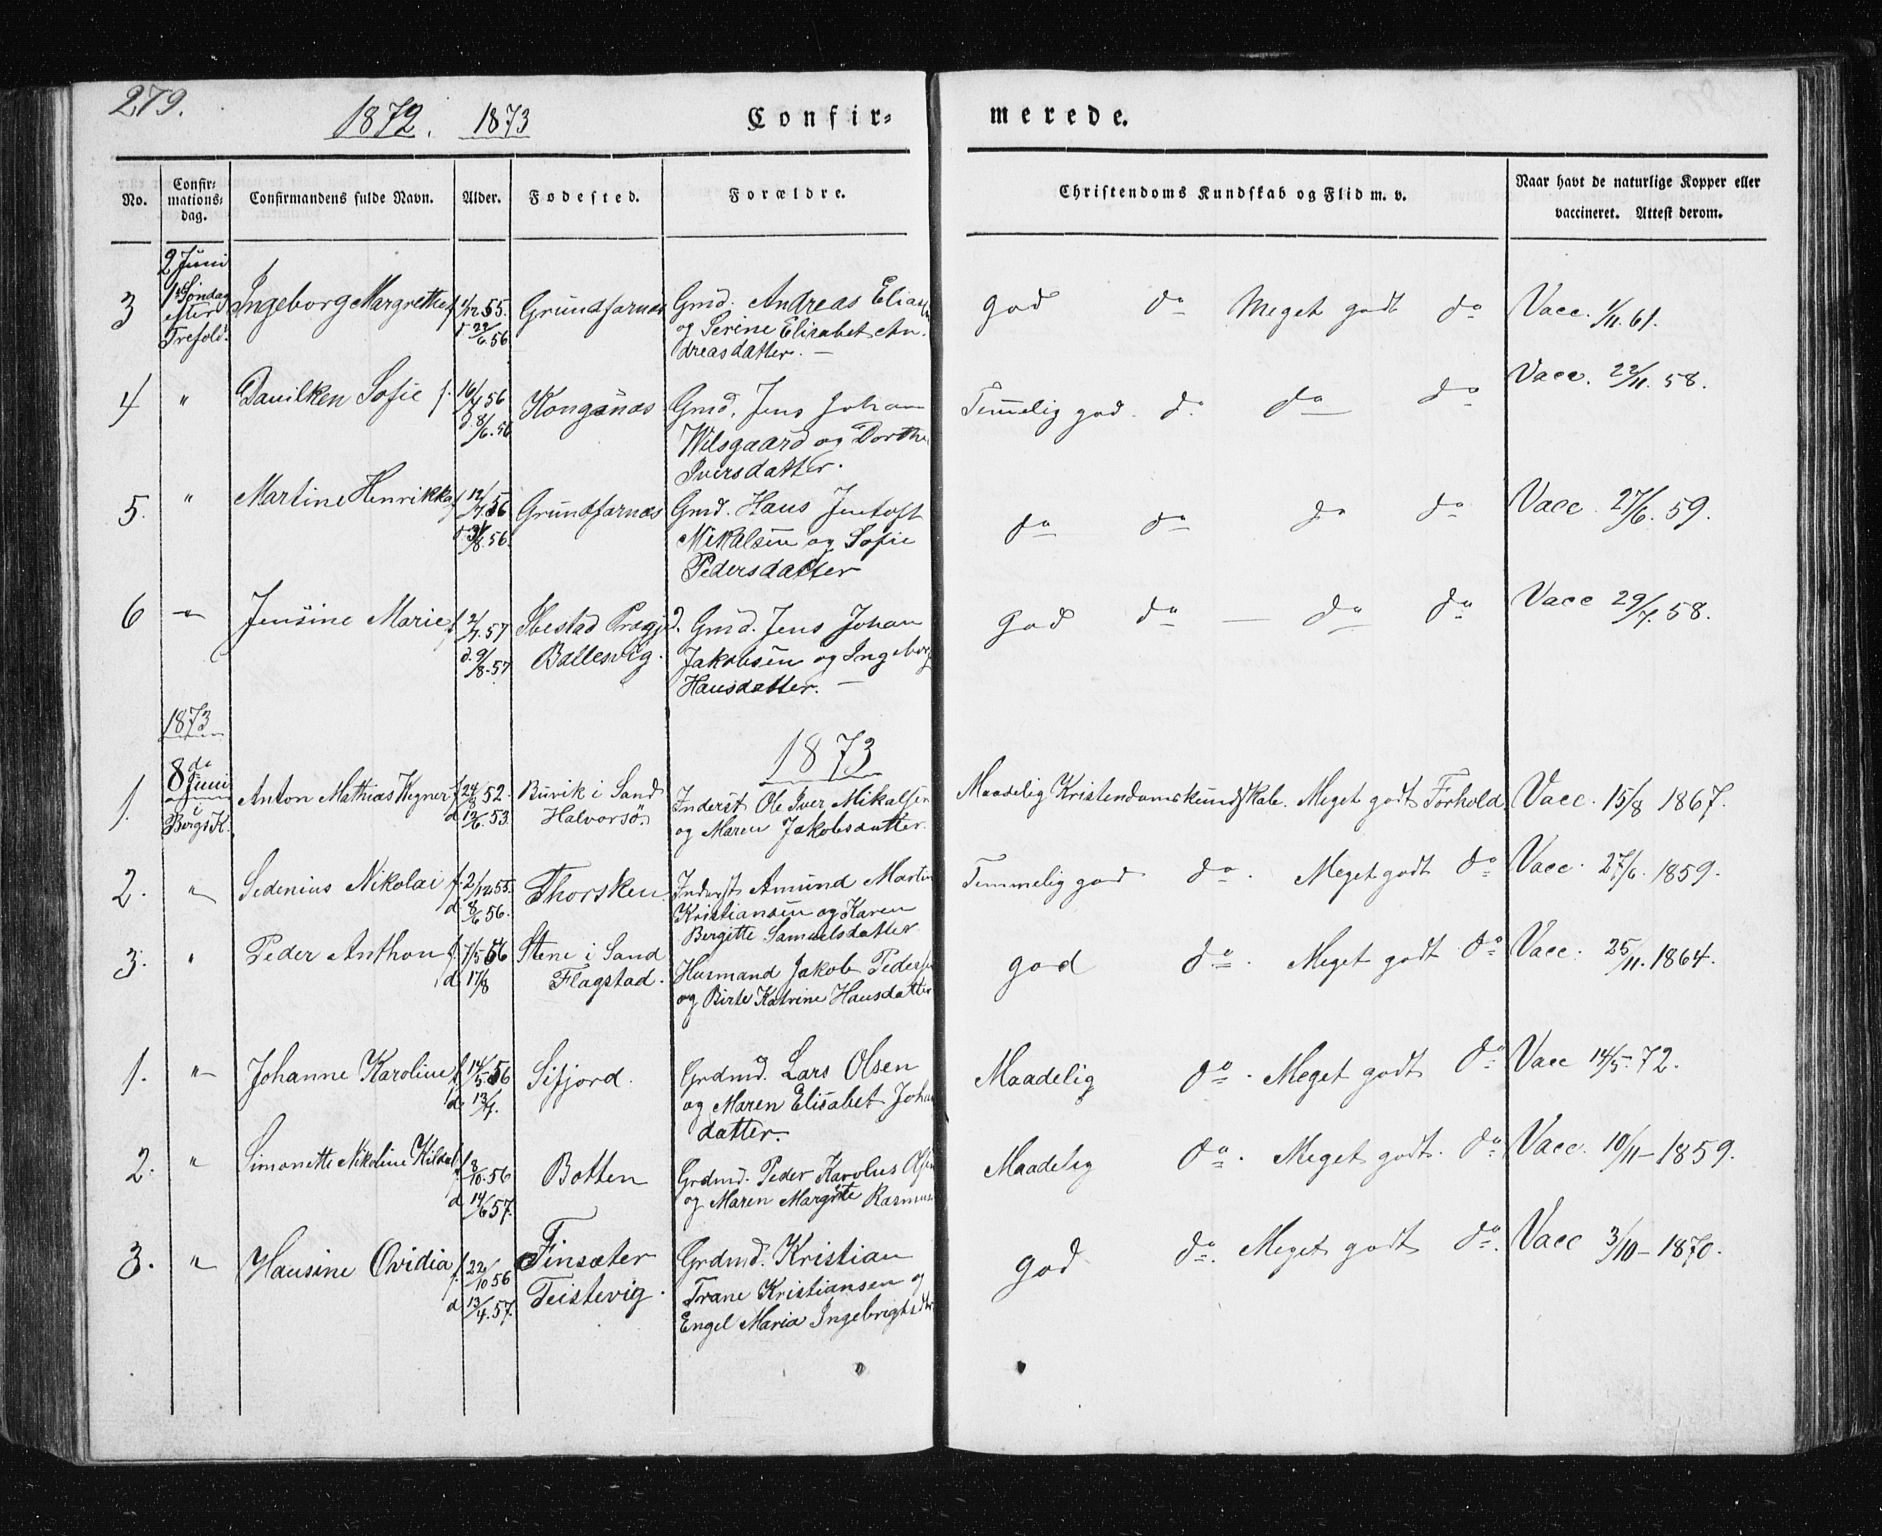 279.
1872. 1873
Confir-
merede.
No.
Confir-
mations-
dag.
Confirmandens fulde Navn.
Alder.
Fødested.
Forældre.
Christendoms Kundskab og Flid m. v.
Naar havt de naturlige Kopper eller
vaccineret. Attest derom.
2 Juni
1ste Søndag
efter
Trefold.
3 Ingeborg Margrethe f. 55. Grundfarnes Gmd. Andreas Elias
d. 22/6 56
og Serine Elisabet An-
dreasdatter. —
god do Meget godt do Vacc. 1/11. 61.
4 " Danilken Sofie f. 10/4 56 Kongsnes Gmd. Jens Johan
d. 8/6. 56
Wilsgaard og Dorthe
Iversdatter.
Temmelig god. do do do Vacc. 22/11. 58.
5. " Martine Henrikka f. 12/7 56 Grundfarnes Gmd. Hans Jentoft
d. 31/8. 56.
Mikalsen og Sofie
Pedersdatter
do do do do Vacc. 27/6. 59.
6 " Jensine Marie f. 2/7. 57 Ibestad Prægj. Gmd. Jens Johan
d. 9/8. 57
Ballesvig.
Jakobsen og Ingeborg
Hansdatter. —
god do — do do Vacc 29/7. 58.
1873
1873
8de
Juni
i
Bergs K.
1. Anton Mathias Wegner f. 24/12 52. Burik i Sand Inderst Ole Iver Mikalsen
d 12/6. 53.
Halvorsø.
og Maren Jakobsdatter.
Maadelig Kristendomskundskab. Meget godt Forhold Vacc. 15/8 1867.
2. " Sedenius Nikolai f. 2/12 55. Thorsken. Inderst Amund Martin
d 8/6 56.
Kristiansen og Karen
Bergitte Samuelsdatter
Temmelig god do. Meget godt do Vacc. 27/6. 1859.
3. " Peder Anthon f. 7/5 56 Stene i Sand
d 17/8
Flagstad.
Husmand Jakob Peders
og Birte Katrine Hansdatter
god do. Meget godt do Vacc. 25/11. 1864.
1. " Johanne Karoline f. 14/5 56 Sifjord. Grdmd. Lars Olsen
d 13/7.
og Maren Elisabet Joha
datter.
Maadelig do. Meget godt do Vacc 14/5. 72.
2. " Simonette Nikoline Kildal f. 8/10. 56 Botten Grdmd. Peder Karolus Ols
d 14/6 57.
og Maren Margrete Rasmus
Maadelig do. Meget godt. do Vacc. 10/11 – 1859.
3. " Hansine Ovidia f. 22/10 56 Finsæter Grdmd. Kristian
d 13/4. 57.
Teistevig.
Trane Kristiansen og
Engel Maria Ingebrigtsdtr
god do. Meget godt do. Vacc 3/10 – 1870.